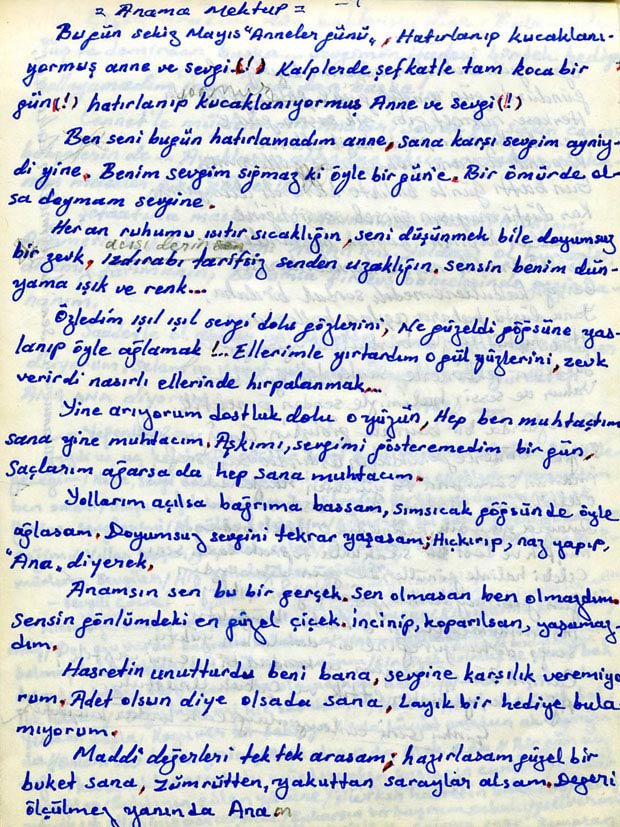 = Anama Mektup =
Bugün sekiz Mayıs "Anneler günü", Hatırlanıp kucaklanı-
yormuş anne ve sevgi (!) Kalplerde şefkatle tam koca bir
gün (!) hatırlanıp kucaklanıyormuş Anne ve sevgi (!)
Ben seni bugün hatırlamadım anne, sana karşı sevgim ayniy-
di yine. Benim sevgim sığmaz ki öyle bir güne. Bir ömürde ol-
sa doymam sevgine.
Her an ruhumu ısıtır sıcaklığın, seni düşünmek bile doyumsuz
acısı derin
bir zevk, ızdırabı tarifsiz senden uzaklığın. sensin benim dün-
yama ışık ve renk...
Özledim ışıl ışıl sevgi dolu gözlerini, Ne güzeldi göğsüne yas-
lanıp öyle ağlamak !... Ellerimle yırtardım o gül yüzlerini, zevk
verirdi nasırlı ellerinde hırpalanmak...
Yine arıyorum dostluk dolu o yüzün, Hep ben muhtaçtım
sana yine muhtacım. Aşkımı, sevgimi gösteremedim bir gün,
Saçlarım ağarsa da hep sana muhtacım.
Yollarım açılsa bağrıma bassam, sımsıcak göğsünde öyle
ağlasam. Doyumsuz sevgini tekrar yaşasam; Hıçkırıp, naz yapıp,
"Ana" diyerek.
Anamsın sen bu bir gerçek. Sen olmasan ben olmazdım.
Sensin gönlümdeki en güzel çiçek. incinip, koparılsan, yaşamaz-
dım.
Hasretin unutturdu beni bana, sevgine karşılık veremiyo
rum. Adet olsun diye olsada sana, Layık bir hediye bula
mıyorum.
Maddi değerleri tek tek arasam; hazırlasam güzel bir
buket sana, Zümrütten, yakuttan saraylar alsam. Değeri
ölçülmez yanında Anam